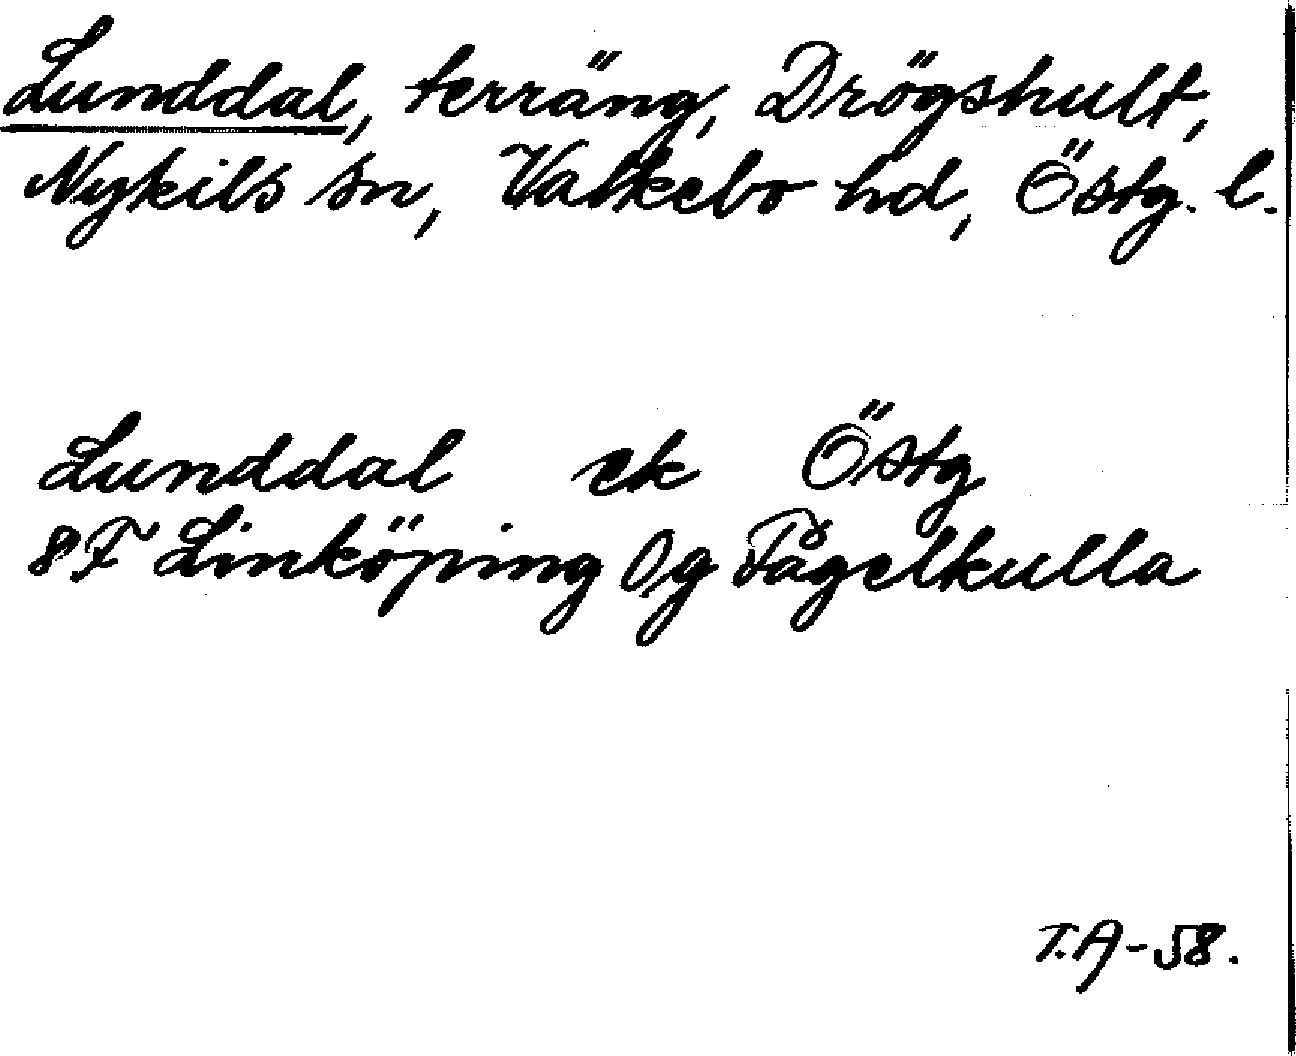 Lunddal, terräng, Drögshult,
Nykils sn, Valkebo hd, Östg. l.
Lunddal ek Östg
8F Linköping 0g Fågelkulla
T.A-58.